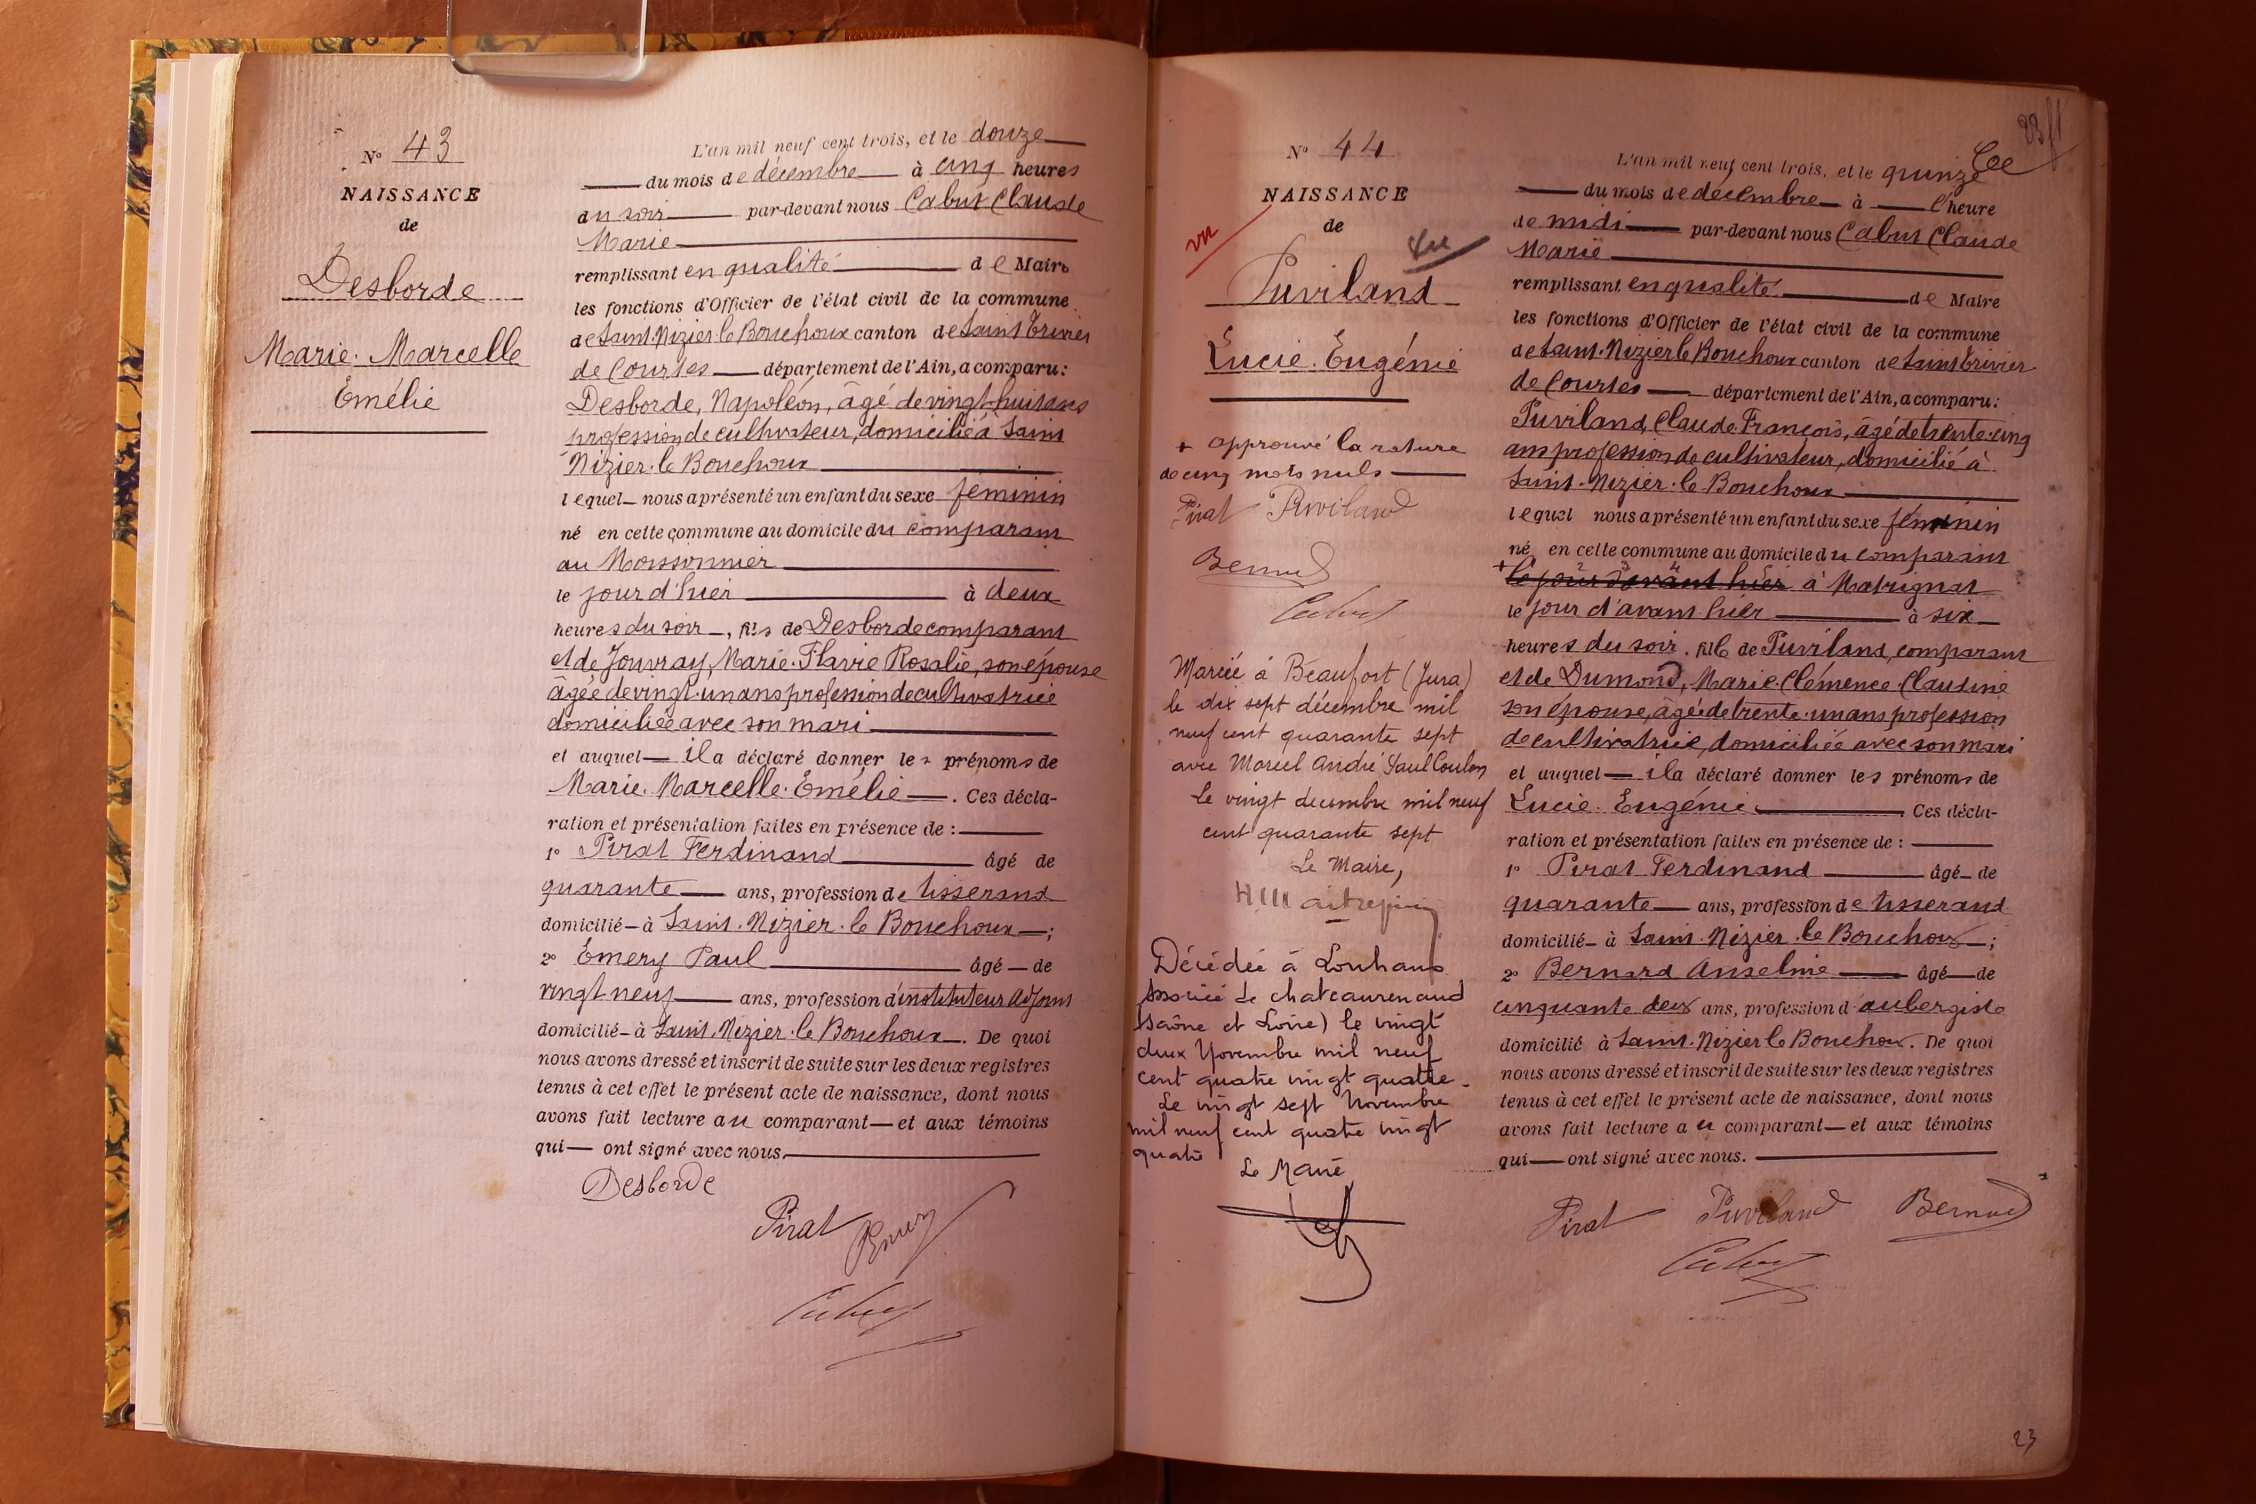 N° 43
NAISSANCE
de
Desborde
Marie. Marcelle
Emélie
L'an mil neuf cent trois, et le douze
du mois de décembre à cinq heures
du soir par-devant nous Cabut Claude
Marie
remplissant en qualité de Maire
les fonctions d'Officier de l'état civil de la commune
de Saint. Nizier le Bouchoux canton de Saint Trivier
de Courtes département de l'Ain, a comparu:
Desborde, Napoléon, âgé de vingt-huit ans
profession de cultivateur, domicilié à Saint
Nizier. le Bouchoux
lequel nous a présenté un enfant du sexe féminin
né en cette commune au domicile du comparant
au Moissonnier
le jour d'hier à deux
heures du soir, fils de Desborde comparant
et de Jouvray, Marie. Flavie Rosalie, son épouse
âgée de vingt. un ans profession de cultivatrice
domiciliée avec son mari
et auquel il a déclaré donner les prénoms de
Marie. Marcelle. Emélie. Ces décla-
ration et présentation faites en présence de :
1° Pirat Ferdinand âgé de
quarante ans, profession de tisserand
domicilié à Saint. Nizier. le Bouchoux ;
2° Emery Paul âgé de
vingt neuf ans, profession d'instituteur adjoint
domicilié à Saint. Nizier. le Bouchoux. De quoi
nous avons dressé et inscrit de suite sur les deux registres
tenus à cet effet le présent acte de naissance, dont nous
avons fait lecture au comparant et aux témoins
qui ont signé avec nous.
Desborde
Pirat Emery
Cabut
23
N° 44
NAISSANCE
de
vu
Puviland
Lucie. Eugénie
+ approuvé la rature
de cinq mots nuls
Pirat Puviland
Bernard
Cabut
Mariée à Beaufort (Jura)
le dix sept décembre mil
neuf cent quarante sept
avec Marcel André Paul Coulon
Le vingt decembre mil neuf
cent quarante sept
Le Maire,
Décédée à Louhans
Associée de chateaurenaud
(Saône et Loire) le vingt
deux Novembre mil neuf
cent quatre vingt quatre.
Le vingt sept Novembre
mil neuf cent quatre vingt
quatre
Le Maire
L'an mil neuf cent trois, et le quinze
du mois de décembre à l'heure
de midi par-devant nous Cabut Claude
Marie
remplissant en qualité de Maire
les fonctions d'Officier de l'état civil de la commune
de Saint. Nizier le Bouchoux canton de Saint Trivier
de Courtes département de l'Ain, a comparu:
Puviland, Claude François, âgé de trente-cinq
ans profession de cultivateur, domicilié à
Saint. Nizier. le Bouchoux
lequel nous a présenté un enfant du sexe féminin
né en cette commune au domicile du comparant
+ le jour d'avant hier à Matrignat
le jour d'avant hier à six
heures du soir, fille de Puviland, comparant
et de Dumond, Marie. Clémence. Claudine
son épouse, âgée de trente. un ans profession
de cultivatrice, domiciliée avec son mari
et auquel il a déclaré donner les prénoms de
Lucie. Eugénie. Ces décla-
ration et présentation faites en présence de :
1° Pirat Ferdinand âgé de
quarante ans, profession de tisserand
domicilié à Saint. Nizier. le Bouchoux ;
2° Bernard Anselme âgé de
cinquante deux ans, profession d'aubergiste
domicilié à Saint. Nizier le Bouchoux. De quoi
nous avons dressé et inscrit de suite sur les deux registres
tenus à cet effet le présent acte de naissance, dont nous
avons fait lecture au comparant et aux témoins
qui ont signé avec nous.
Pirat Puviland Bernard
Cabut
23